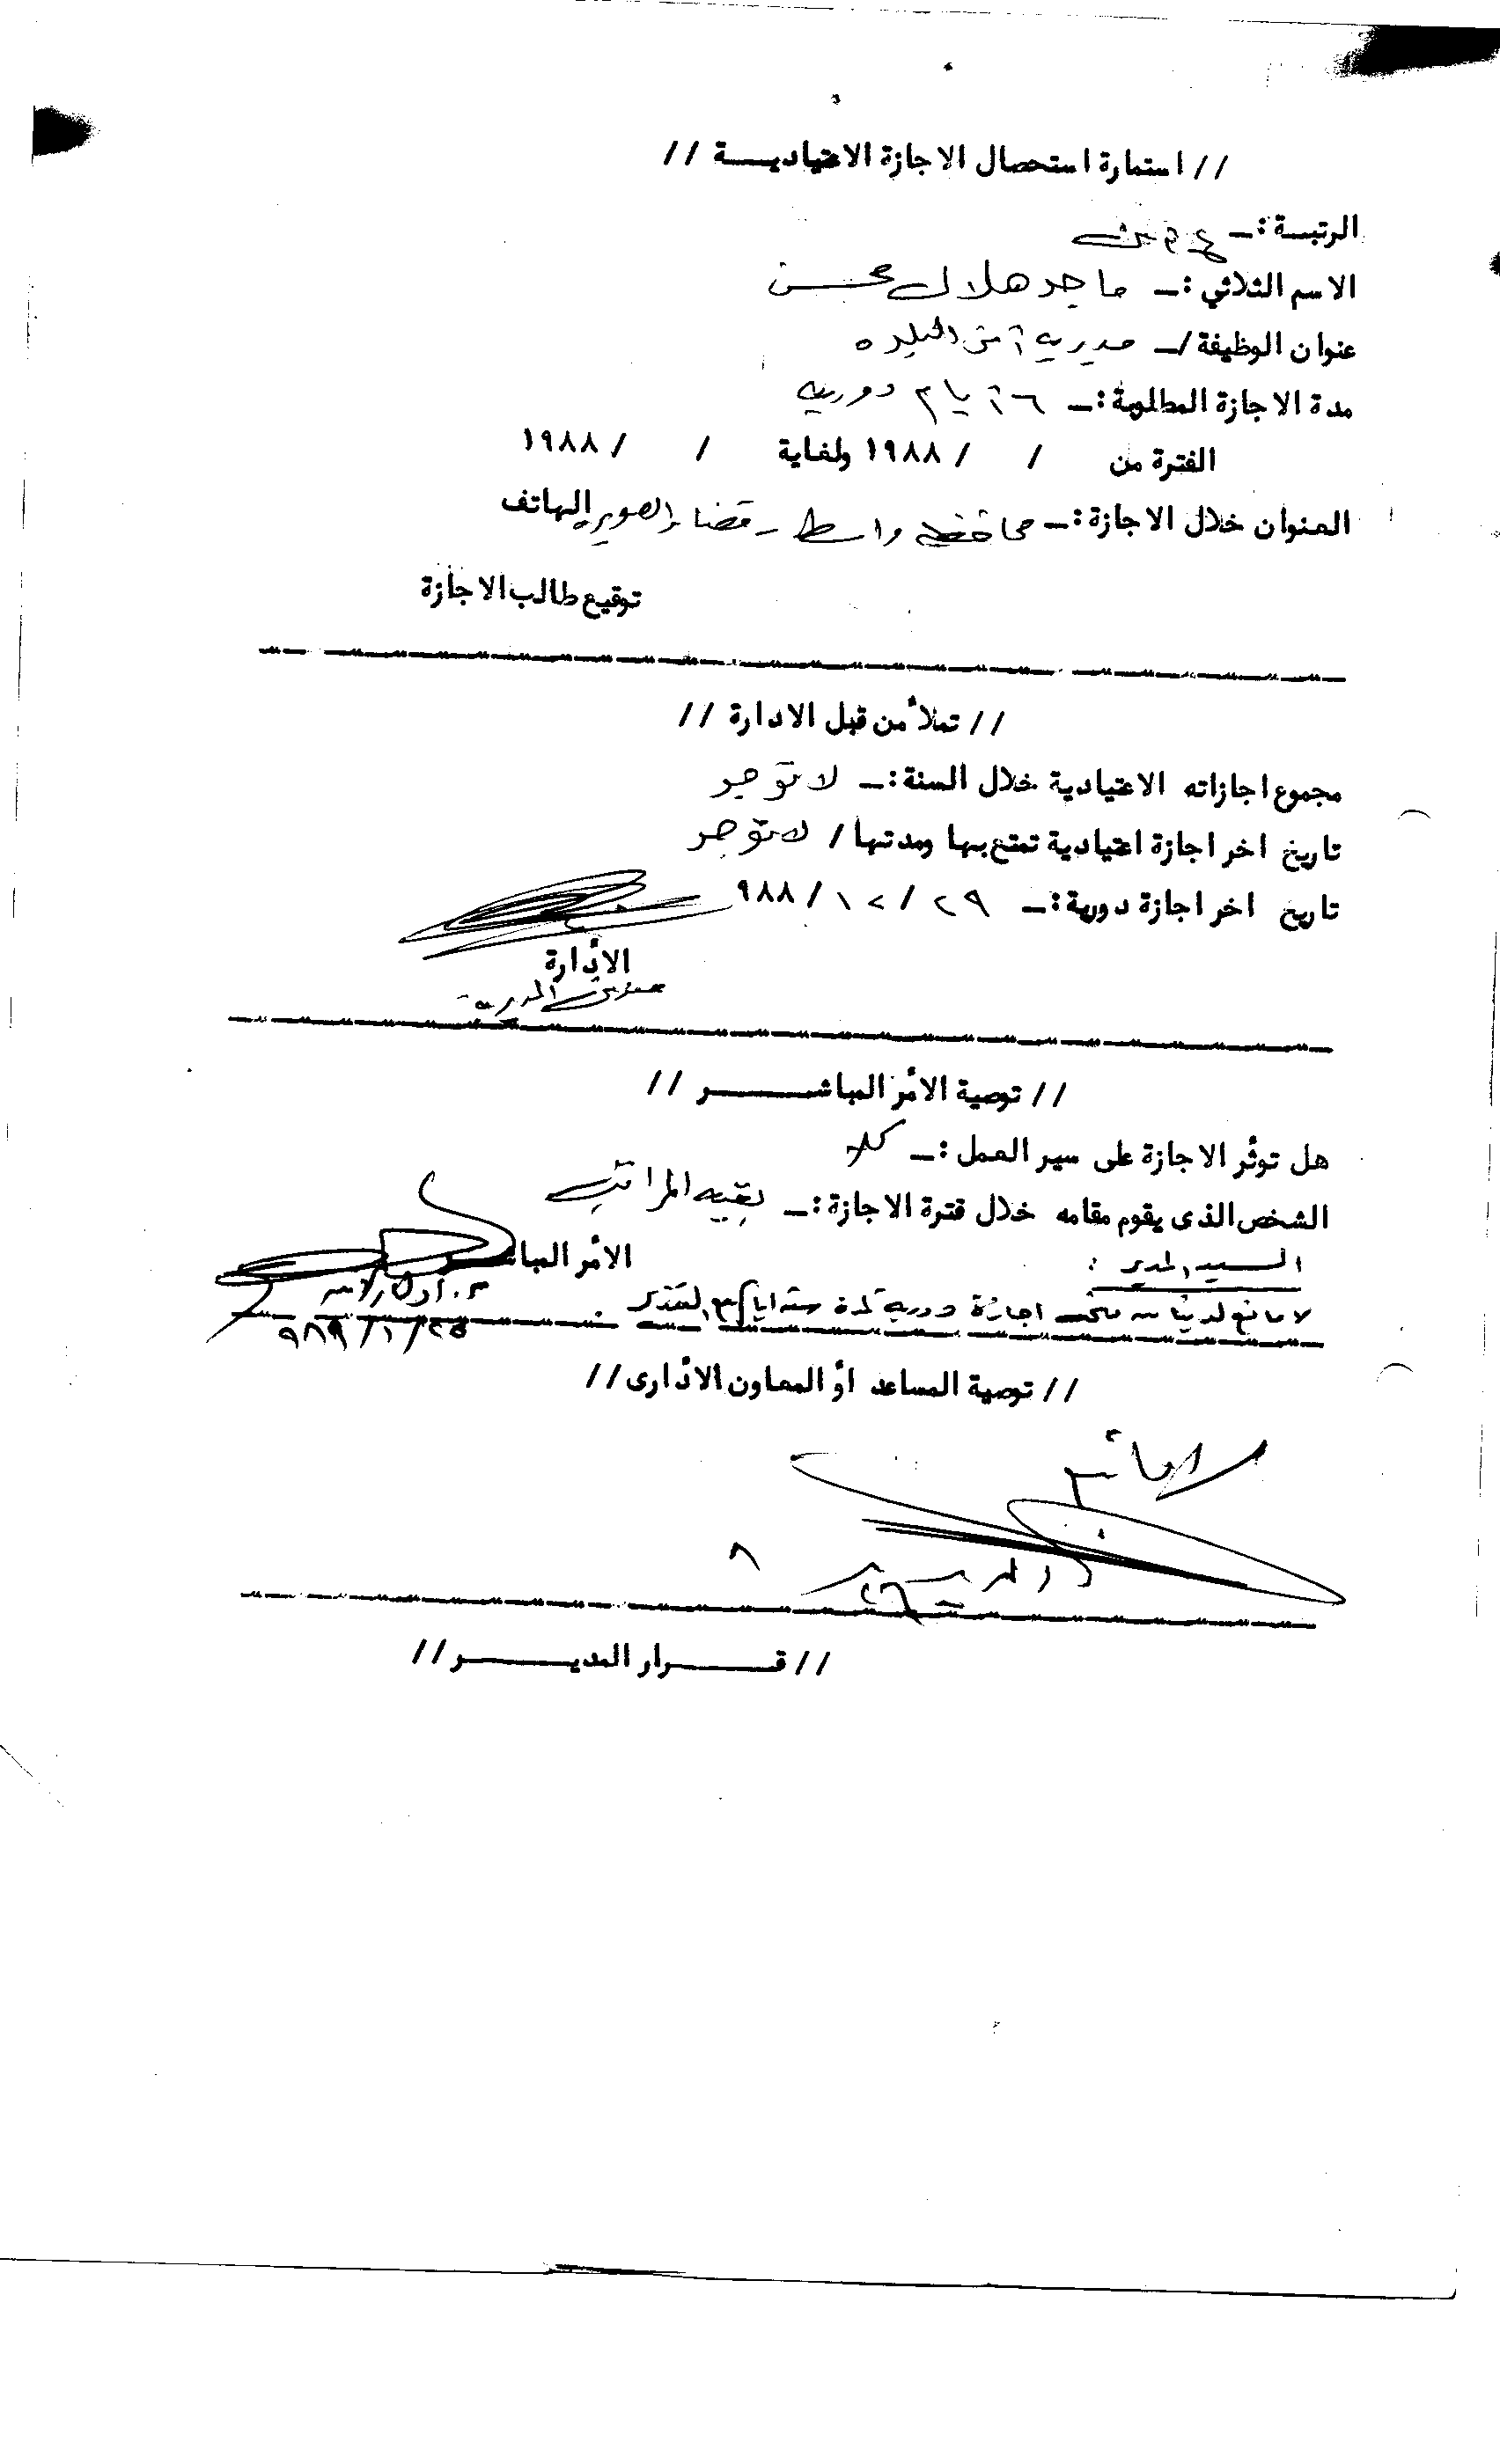 // استمارة استحصال الاجازة الاعتياديـــة //
الرتبـة :ــ
الاسم الثلاثي :ــ ماجد هلال محسن
عنوان الوظيفة /ــ مديرية أمن البلدة
مدة الاجازة المطلوبة :ــ ٦ أيام دورية
الفترة من / / ١٩٨٨ ولغاية / / ١٩٨٨
العنوان خلال الاجازة :ــ محافظة واسط ـ قضاء الصويرة الهاتف
توقيع طالب الاجازة
// تملأ من قبل الادارة //
مجموع اجازاته الاعتيادية خلال السنة :ــ لا توجد
تاريخ اخر اجازة اعتيادية تمتع بها ومدتها / لا توجد
تاريخ اخر اجازة دورية :ــ ٢٩ / ١٢ / ٩٨٨
الأدارة
// توصية الأمر المباشـــــر //
هل توثر الاجازة على سير العمل :ــ كلا
الشخص الذى يقوم مقامه خلال فترة الاجازة :ــ بقية المراتب
الأمر المباشـــر
السيد المدير :
لا مانع لدينا من منحه اجازة دورية لمدة ستة ايام
م. أول
٢٥ / ١ / ٩٨٩
// توصية المساعد أو المعاون الأدارى //
لا مانع
// قـــــرار المديـــــر //